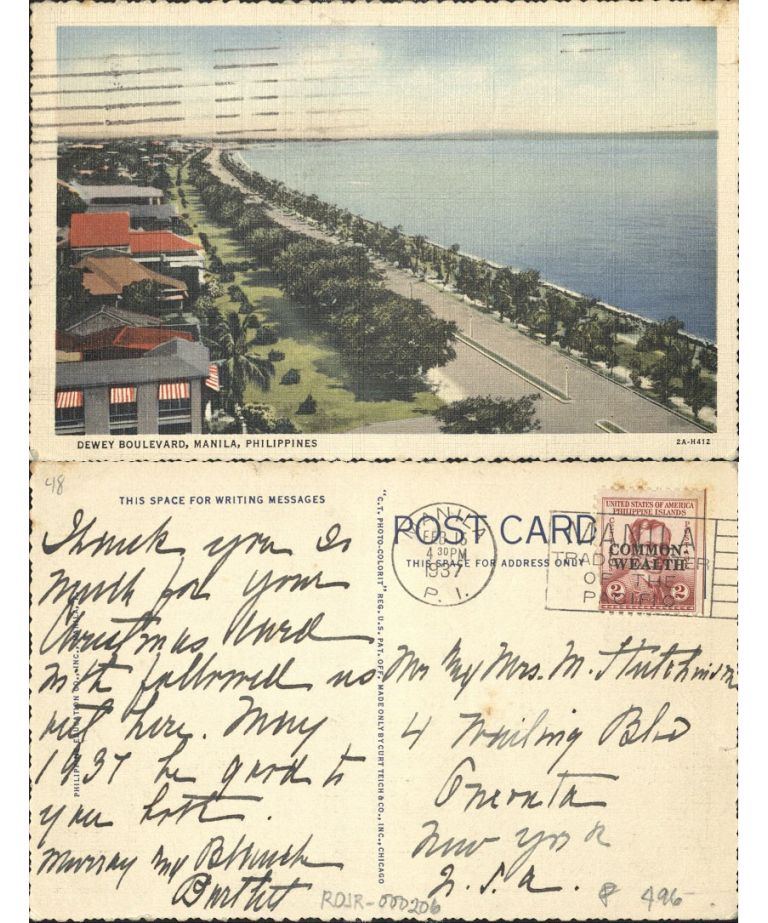 DEWEY BOULEVARD, MANILA, PHILIPPINES
2A-H412
48
THIS SPACE FOR WRITING MESSAGES
Thank you so
much for your
Christmas Card
wh followed us
out here. May
1937 be good to
you both.
Murray and Blanch
Bartlett
PHILIPPINE EDUCATION CO., INC.,
"C.T. PHOTO-COLORIT" REG. U.S. PAT. OFF. MADE ONLY BY CURT TEICH & CO., INC., CHICAGO
POST CARD
THIS SPACE FOR ADDRESS ONLY
MANILA
FEB 15
4 30 PM
1937
P. I.
MANILA
TRADE CENTER
OF THE
PACIFIC
UNITED STATES OF AMERICA
PHILIPPINE ISLANDS
COMMON-
WEALTH
2 2
Mr and Mrs. M. Hutchinson
4 Walling Blvd
Oneonta
New York
U. S. A.
RDJR-000206
P 496